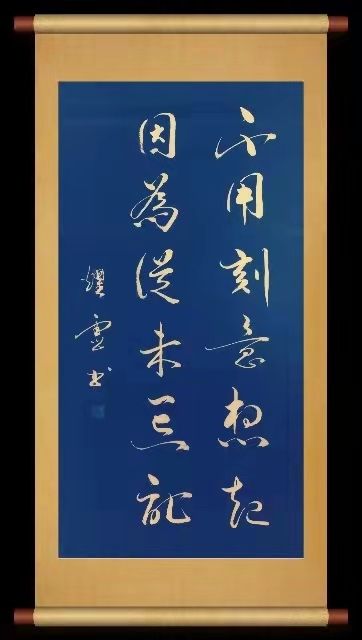 不用刻意想起
因為從未忘記
耀靈書